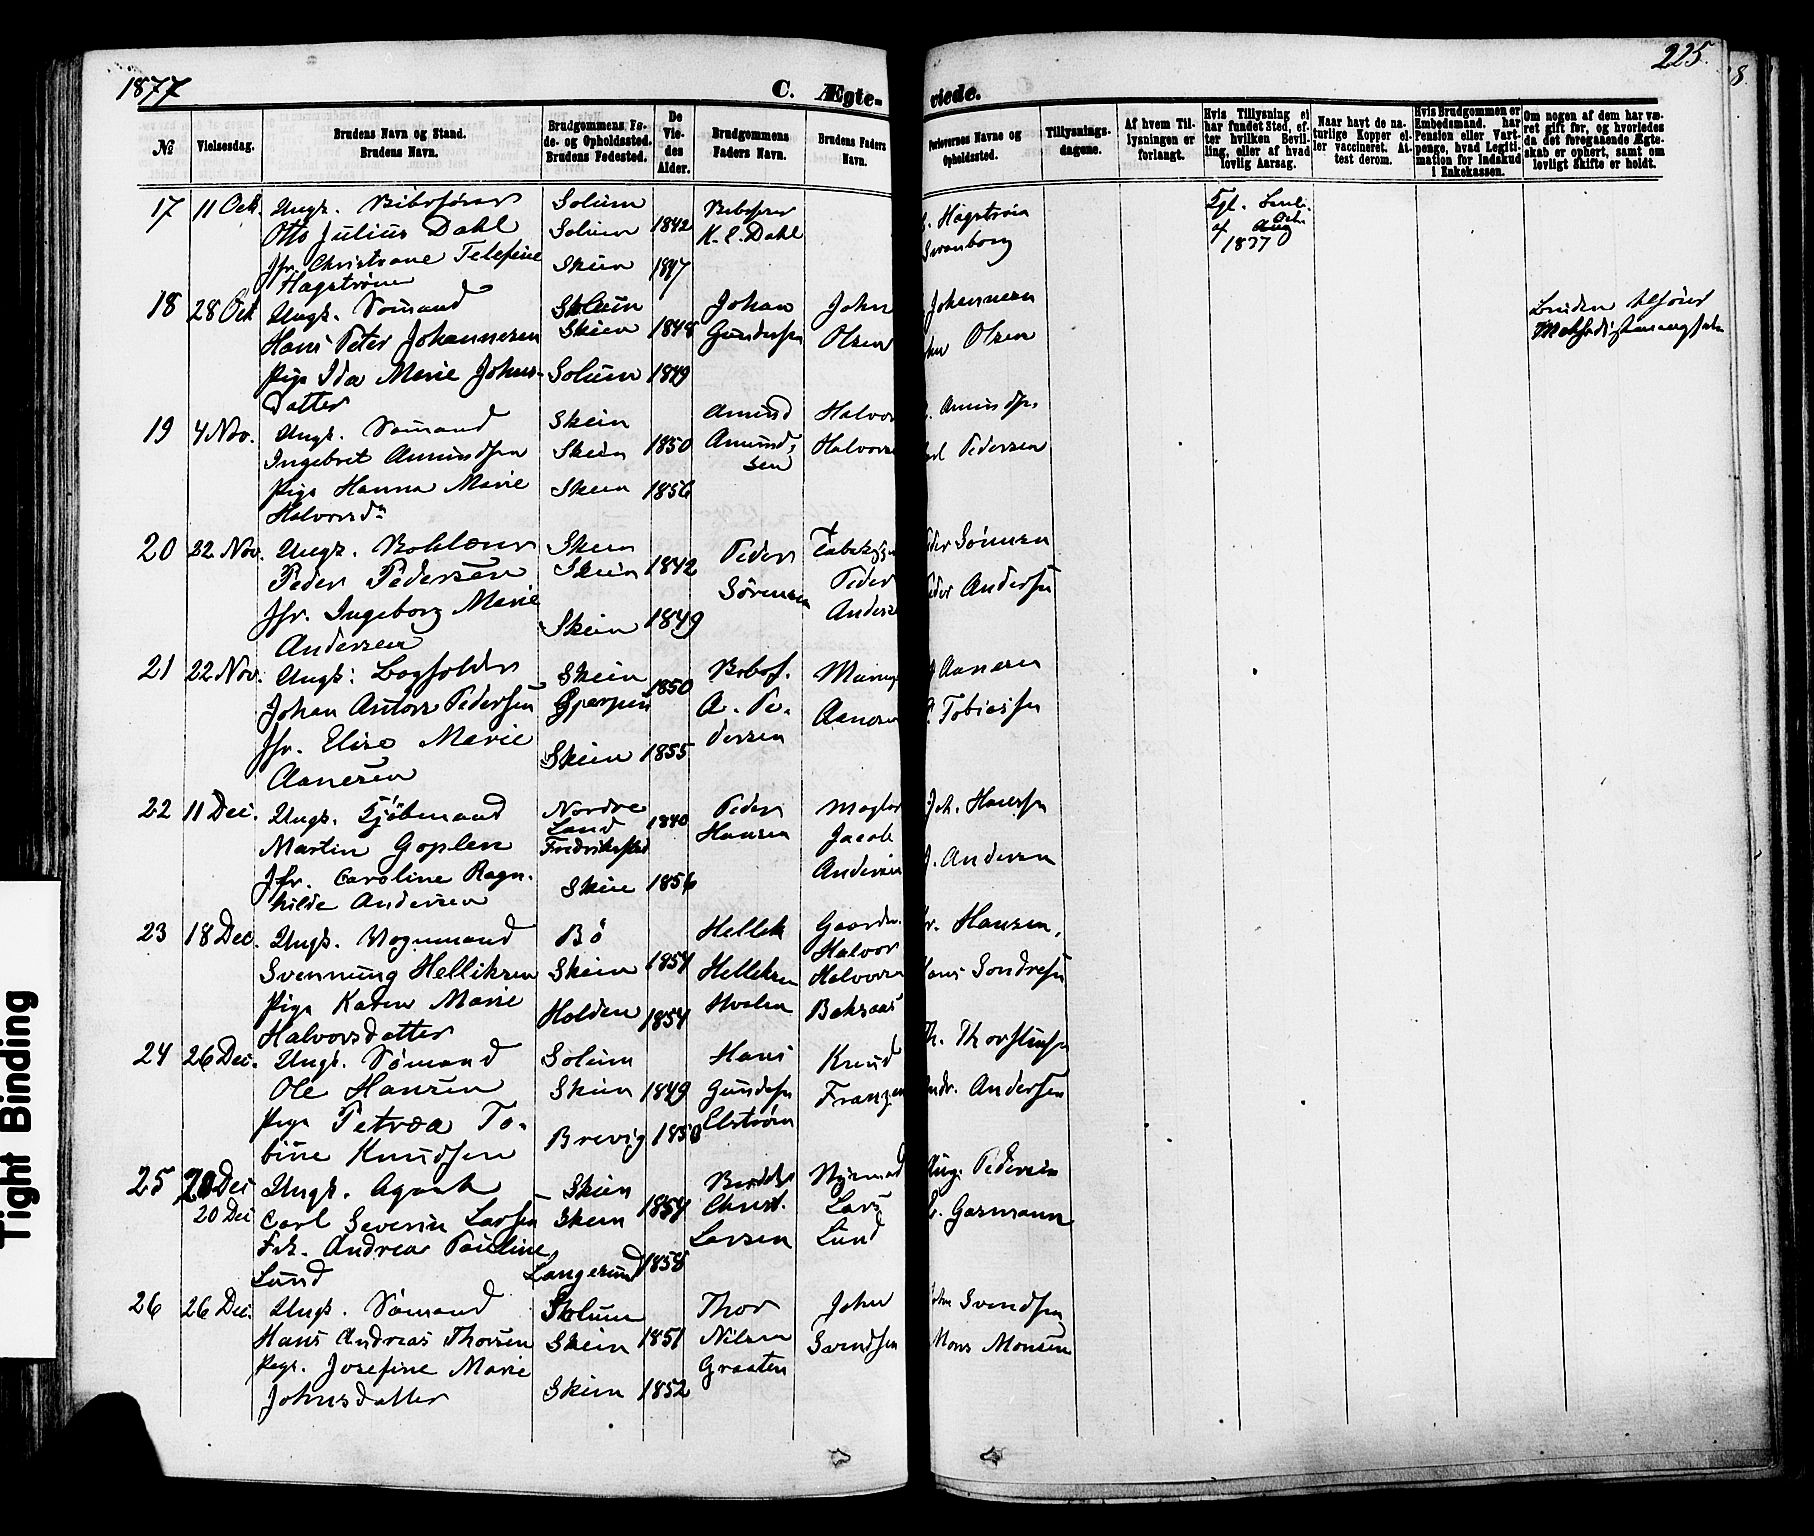 1877
C. Ægte-
viede.
225.
8.
№
Vielsesdag.
Brudens Navn og Stand.
Brudens Navn.
Brudgommens Fø-
de- og Opholdssted.
Brudens Fødested.
De
Vie-
des
Alder.
Brudgommens
Faders Navn.
Brudens Faders
Navn.
Forlovernes Navne og
Opholdssted.
Tillysnings-
dagene.
Af hvem Til-
lysningen er
forlangt.
Hvis Tillysning ei
har fundet Sted, ef-
ter hvilken Bevil-
ling, eller af hvad
lovlig Aarsag.
Naar havt de na-
turlige Kopper el-
ler vaccineret. At-
test derom.
Hvis Brudgommen er
Embedsmand, har
Pension eller Vart-
penge, hvad Legiti-
mation for Indskud
i Enkekassen.
Om nogen af dem har væ-
ret gift før, og hvorledes
da det foregaaende Ægte-
skab er ophørt, samt om
lovligt Skifte er holdt.
17 11 Oct. Ungk.
Otto Julius Dahl
Jfr. Christiane Telefine
Hagstrøm
Solum
Solum
Skien
1842
1847
K. E. Dahl
Hagstrøm
Svanborg
Kgl.
1877
18 28 Oct Ungk. Sømand
Hans Peter Johannesen
Pige Ida Marie Johns-
datter
Solum
Skien
Solum
1848
1849
Johan
Gundersen
John
Olsen
Johannesen
Olsen
Bruden tilhører
19 4 Nov. Ungk. Sømand
Ingebret Amundsen
Pige Hanna Marie
Halvorsdr
Skien
Skien
Skien
1850
1856
Amund
Amund-
sen
Halvor
Halvorsen
Amundsen
Pedersen
20 22 Nov. Ungk.
Peder Pedersen
Jfr. Ingeborg Marie
Andersen
Skien
Skien
Skien
1842
1849
Peder
Sørensen
Peder
Andersen
Peder Sørensen
Peder Andersen
21 22 Nov. Ungk: Bogholder
Johan Anton Pedersen
Jfr. Elise Marie
Aanesen
Skien
Gjerpen
Skien
1850
1855
A. Pe-
dersen
Aanesen
Aanesen
Tobiassen
22 11 Dec. Ungk. Kjøbmand
Martin Goplen
Jfr. Caroline Ragn-
hilde Andersen
Nordre
Land
Fredrikstad
Skien
1840
1856
Peder
Hansen
Mægler
Jacob
Andersen
Joh. Hansen
J. Andersen
23 18 Dec. Ungk. Vognmand
Svennung Helliksen
Pige Karen Marie
Halvorsdatter
Bø
Skien
Holden
1854
1854
Hellek
Helleksen
Hvalen
Gaardm.
Halvor
Halvorsen
Baksaas
Hansen,
Hans Sondresen
24 26 Dec. Ungk. Sømand
Ole Hansen
Pige Petrea To-
bine Knudsen
Solum
Skien
Brevig
1849
1850
Hans
Gundersen
Elstrøm
Knud
Franzen
Th. Thorstensen
Andr. Andersen
25 20 Dec
20 Dec
Ungk. Agent
Carl Severin Larsen
Frk. Andrea Pauline
Lund
Skien
Skien
Langesund
1854
1858
Christ.
Larsen
Lars
Lund
Aug. Pedersen
Garmann
26 26 Dec. Ungk. Sømand
Hans Andreas Thorsen
Pige. Josefine Marie
Johnsdatter
Solum
Skien
Skien
1851
1852
Thor
Nilsen
Graaten
John
Svendsen
John Svendsen
Mons Monsen
Tight Binding